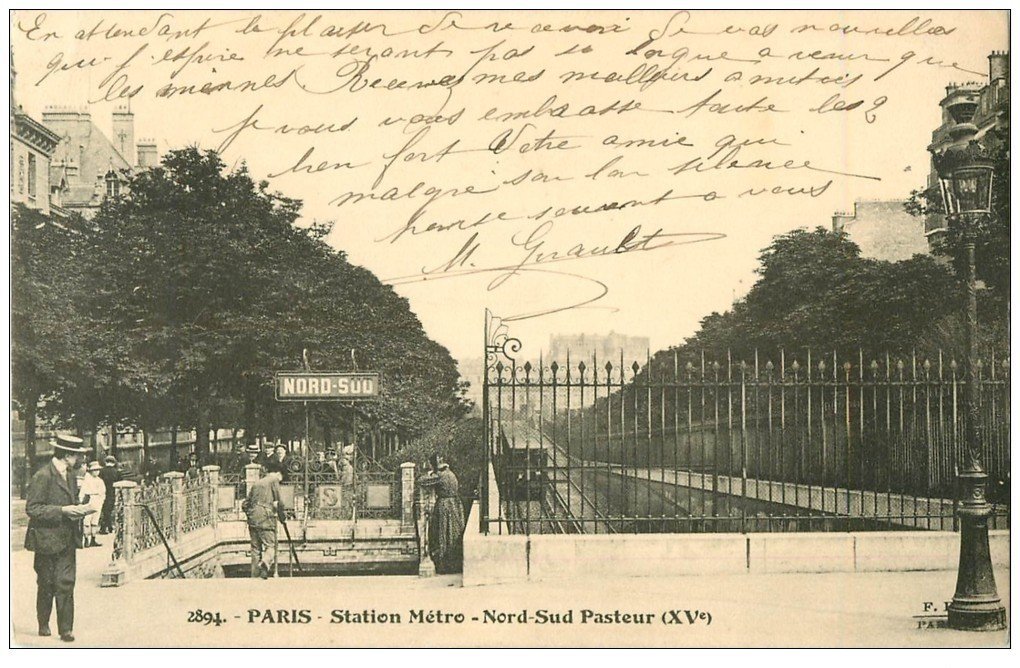 En attendant le plaisir de recevoir de vos nouvelles
que j'espère ne seront pas si longue a venir que
les miennes Recevez mes meilleurs amitiés
je vous embrasse toute les 2
bien fort Votre amie qui
malgré son lon silence
pense souvent a vous
M. Girault
NORD-SUD
S
2894. - PARIS - Station Métro - Nord-Sud Pasteur (XVe)
F.
PA